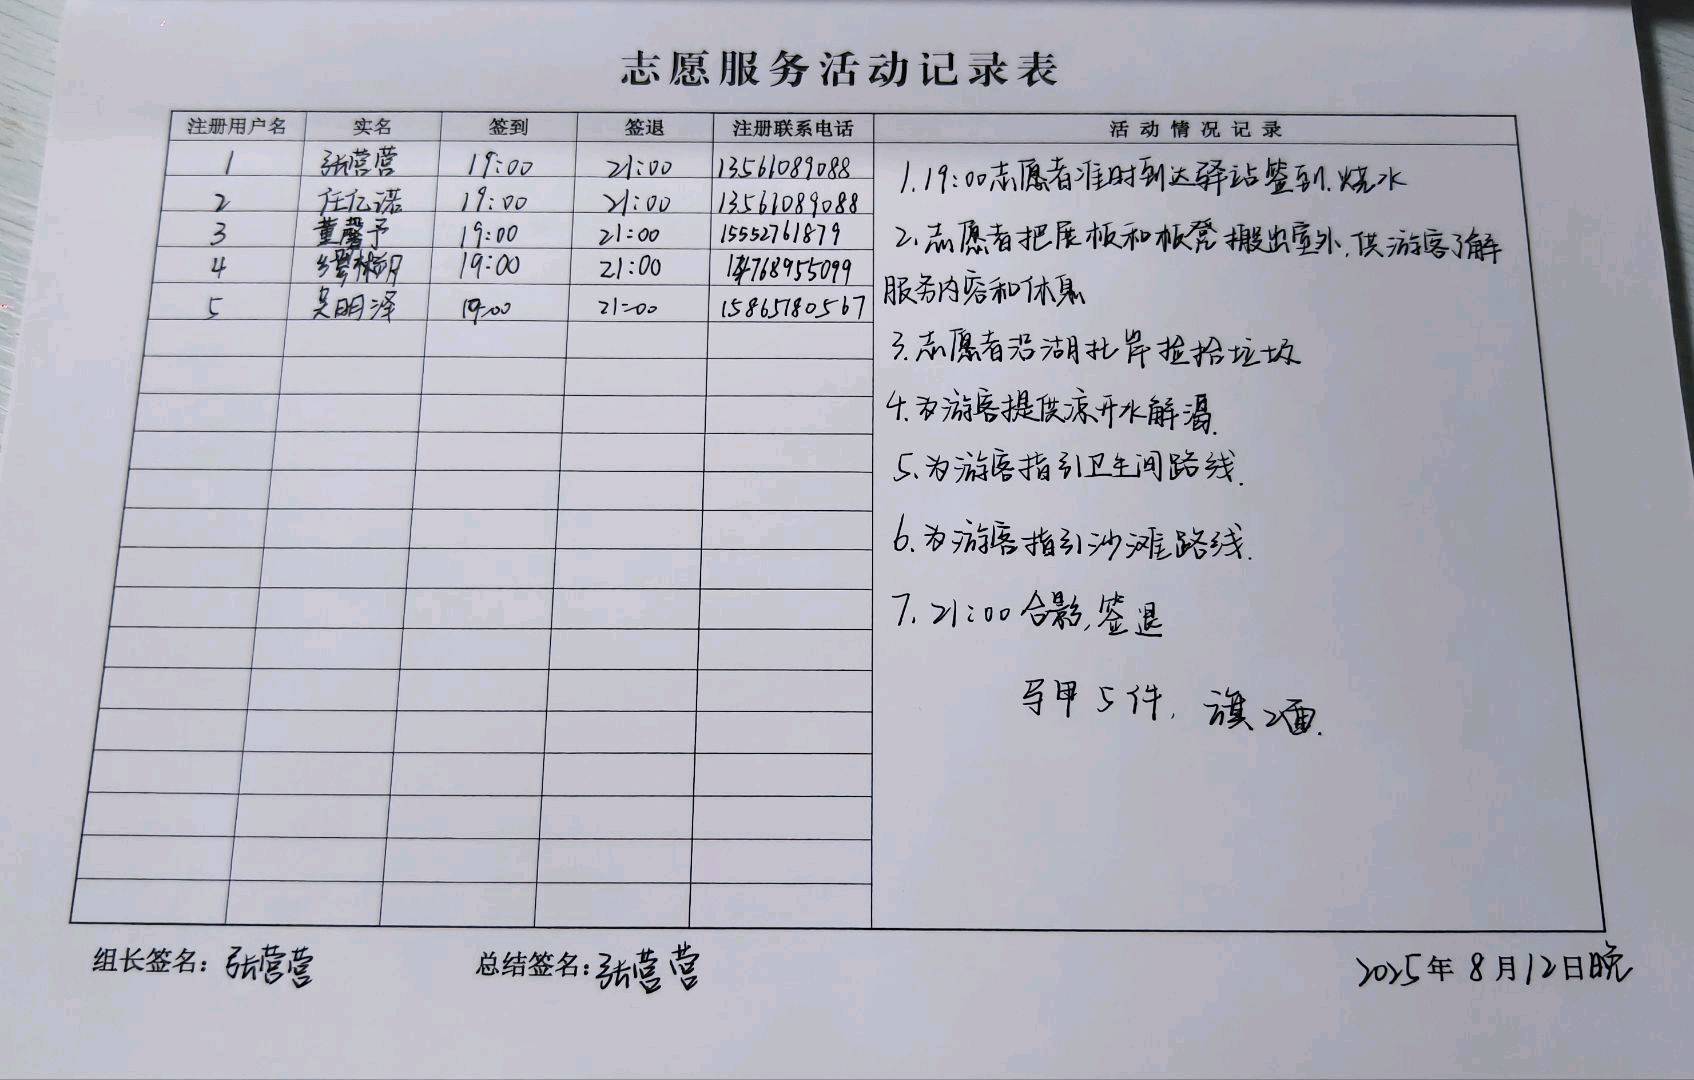 志愿服务活动记录表
注册用户名 实名 签到 签退 注册联系电话 活动情况记录
1 张营营 19:00 21:00 13561089088
2 任亿诺 19:00 21:00 13561089088
3 董馨予 19:00 21:00 15552761879
4 19:00 21:00 14768955099
5 吴明泽 19:00 21:00 15865780567
1.19:00志愿者准时到达驿站签到.烧水
2.志愿者把展板和板凳搬出室外,供游客了解
服务内容和休息
3.志愿者沿湖北岸捡拾垃圾
4.为游客提供凉开水解渴.
5.为游客指引卫生间路线.
6.为游客指引沙滩路线.
7.21:00合影,签退
马甲5件,旗2面.
组长签名:张营营 总结签名:张营营 2025年8月12日晚